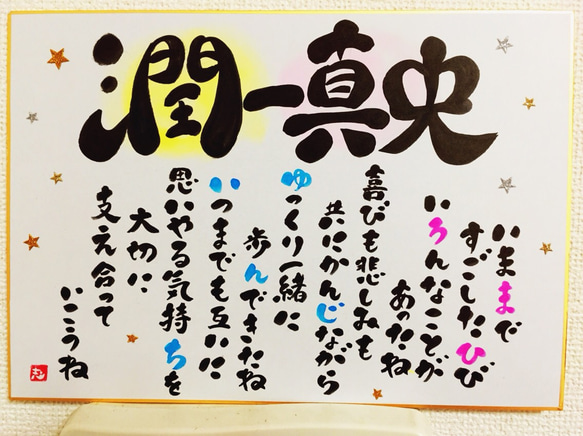 潤一真史
いままで
すごしたひび
いろんなことが
あったね
喜びも悲しみも
共にかんじながら
ゆっくり一緒に
歩んできたね
いつまでも互いに
思いやる気持ちを
大切に
支え合って
いこうね